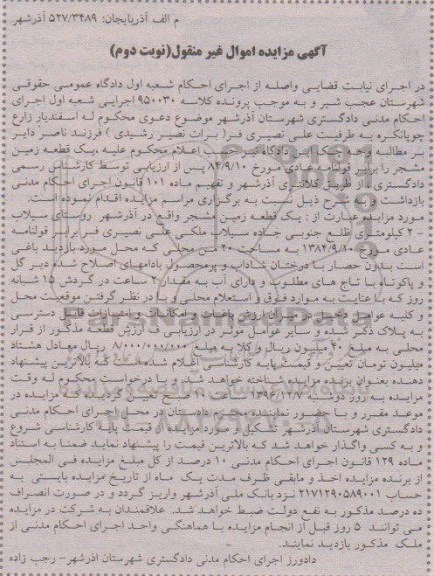 م الف آذربایجان: ۵۲۷/۳۴۸۹ آذرشهر
آگهی مزایده اموال غیر منقول(نوبت دوم)
در اجرای نیابت قضایی واصله از اجرای احکام شعبه اول دادگاه عمومی حقوقی
شهرستان عجب شیر و به موجب پرونده کلاسه ۹۵۰۰۳۰ اجرایی شعبه اول اجرای
احکام مدنی دادگستری شهرستان آذرشهر موضوع دعوی محکوم له اسفندیار زارع
جوپانکره به طرفیت علی نصیری فر( برات نصیر رشیدی ) فرزند ناصر دایر
بر مطالبه وجه در حق دادگاه نیز حسب اعلام محکوم علیه ،یک قطعه زمین
مشجر را برابر قولنامه عادی مورخ ۸۴/۹/۱۰ پس از ارزیابی توسط کارشناس رسمی
دادگستری از طریق کلانتری آذرشهر و تفهیم ماده ۱۰۱ قانون اجرای احکام مدنی
بازداشت شرح ذیل نسبت به برگزاری مراسم مزایده اقدام نموده است.
مورد مزایده عبارت از : یک قطعه زمین مشجر واقع در آذرشهر روستای سیلاب
۲۰ کیلومتر ضلع جنوبی جاده سیلاب ملکی علی نصیری فر برابر قولنامه
عادی مورخ ۱۳۸۴/۹/۱۰ به مساحت ۲۰ من محلی که محل مورد بازدید باغی
است بدون حصار با درختان شاداب و پرمحصول بادامهای اصلاح شده دیر گل
و پاکوتاه با تاج های مطلوب و دارای آب به مقدار ۲ ساعت در گردش ۱۵ شبانه
روز که با عنایت به موارد فوق و استعلام محلی و با در نظر گرفتن موقعیت محل
و کلیه عوامل ارزش باغات و امکانات و امتیازات قابل دسترسی
به پلاک ذکر شده و سایر عوامل موثر در ارزیابی ارزش قطعه مذکور از قرار
محلی به مبلغ ۴۰ میلیون ریال و کلا به مبلغ ۸/۰۰۰/۰۰۰/۰۰۰ ریال معادل هشتاد
میلیون تومان تعیین و قیمت پایه کارشناسی اعلام شده است که بالاترین پیشنهاد
دهنده بعنوان برنده مزایده شناخته خواهد شد و با درخواست محکوم له وقت
مزایده به روز دوشنبه ۱۳۹۶/۱۲/۷ ساعت ۱۰ صبح تعیین گردید مزایده در
موعد مقرر و با حضور نماینده محترم دادستان در محل اجرای احکام مدنی
دادگستری شهرستان آذرشهر تشکیل و مورد مزایده از قیمت پایه کارشناسی شروع
و به کسی واگذار خواهد شد که بالاترین قیمت را پیشنهاد نماید ضمنا به استناد
ماده ۱۲۹ قانون اجرای احکام مدنی ۱۰ درصد از کل مبلغ مزایده فی المجلس
از برنده مزایده اخذ و مابقی ظرف مدت یک ماه از تاریخ مزایده بایستی به
حساب ۲۱۷۱۲۹۰۵۸۹۰۰۱ نزد بانک ملی آذرشهر واریز گردد و در صورت انصراف
ده درصد مذکور به نفع دولت ضبط خواهد شد. علاقمندان به شرکت در مزایده
می توانند ۵ روز قبل از انجام مزایده با هماهنگی واحد اجرای احکام مدنی از
ملک مذکور بازدید نمایند.
دادورز اجرای احکام مدنی دادگستری شهرستان آذرشهر- رجب زاده